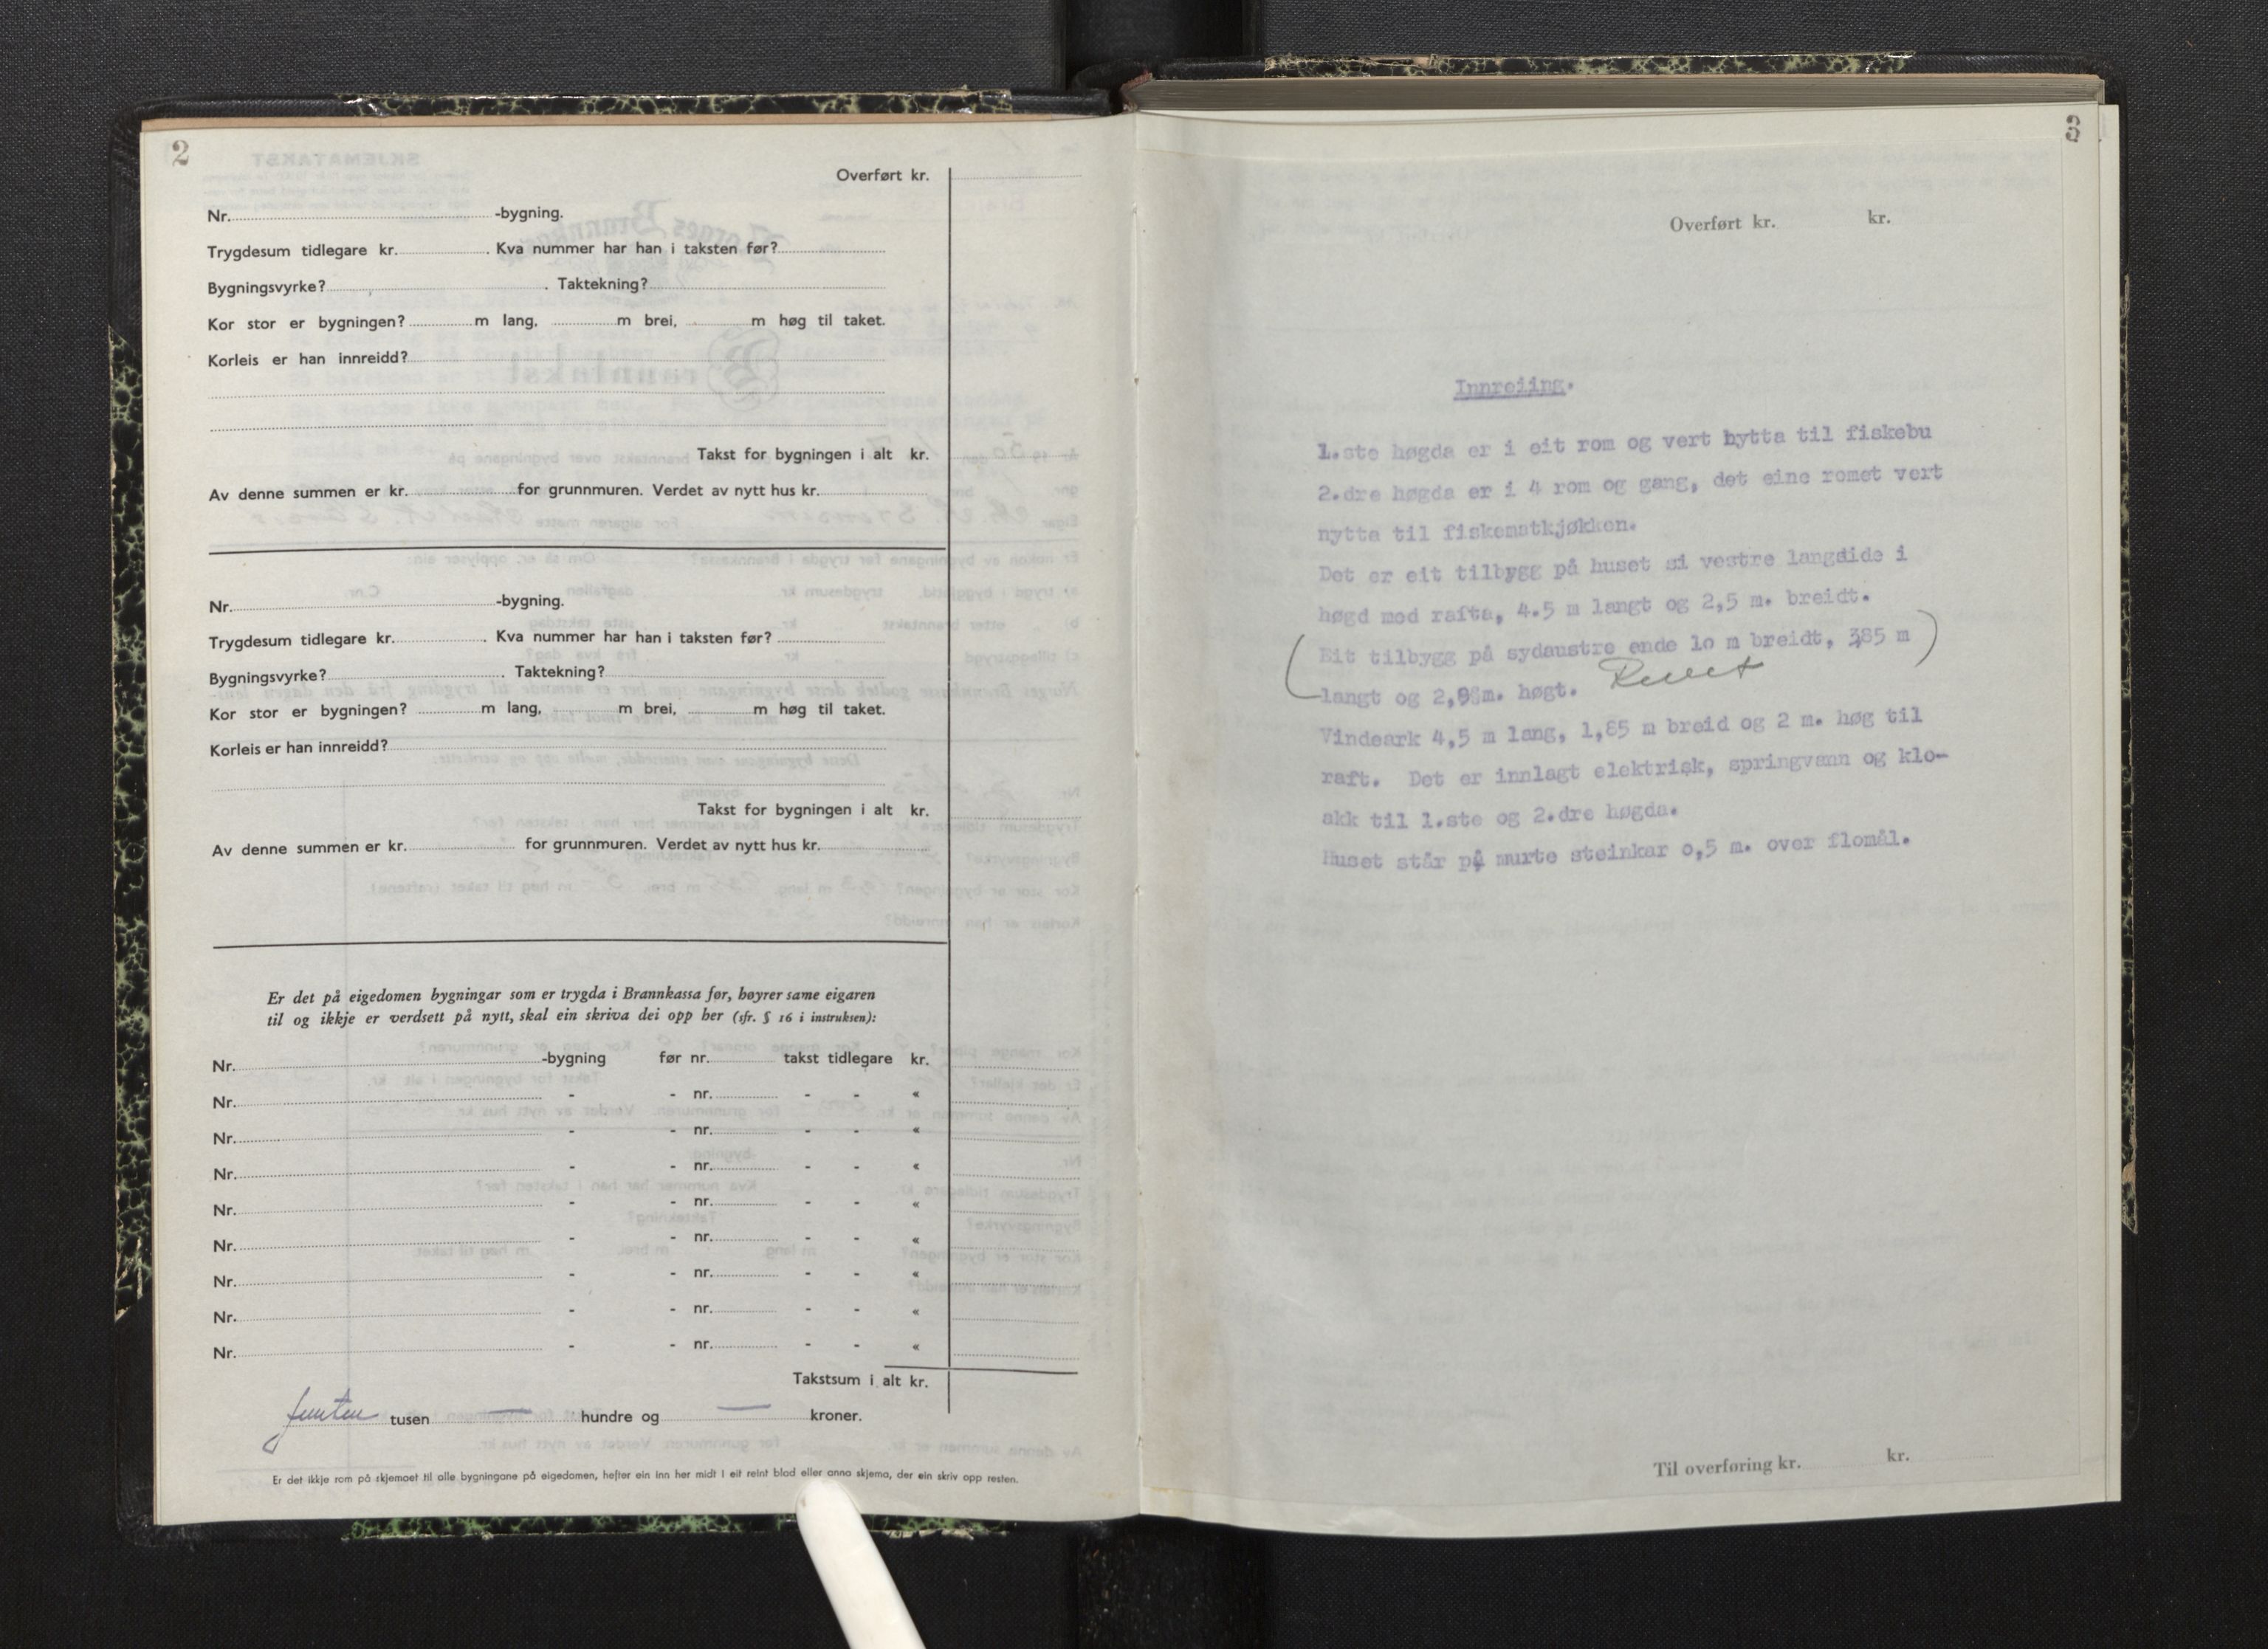 2
Overført kr.
Nr. -bygning.
Trygdesum tidlegare kr. . Kva nummer har han i taksten før?
Bygningsvyrke? . Taktekning?
Kor stor er bygningen? m lang, m brei, m høg til taket.
Korleis er han innreidd?
Takst for bygningen i alt kr.
Av denne summen er kr. for grunnmuren. Verdet av nytt hus kr.
Nr. -bygning.
Trygdesum tidlegare kr. . Kva nummer har han i taksten før?
Bygningsvyrke? . Taktekning?
Kor stor er bygningen? m lang, m brei, m høg til taket.
Korleis er han innreidd?
Takst for bygningen i alt kr.
Av denne summen er kr. for grunnmuren. Verdet av nytt hus kr.
Er det på eigedomen bygningar som er trygda i Brannkassa før, høyrer same eigaren
til og ikkje er verdsett på nytt, skal ein skriva dei opp her (sfr. § 16 i instruksen):
Nr. -bygning før nr. takst tidlegare kr.
Nr. - - nr. - - «
Nr. - - nr. - - «
Nr. - - nr. - - «
Nr. - - nr. - - «
Nr. - - nr. - - «
Nr. - - nr. - - «
Nr. - - nr. - - «
Nr. - - nr. - - «
Takstsum i alt kr.
femten tusen — hundre og — kroner.
Er det ikkje rom på skjemaet til alle bygningane på eigedomen, hefter ein inn her midt i eit reint blad eller anna skjema, der ein skriv opp resten.
3
Overført kr. kr.
Innreiing.
1.ste høgda er i eit rom og vert nytta til fiskebu
2.dre høgda er i 4 rom og gang, det eine romet vert
nytta til fiskematkjøkken.
Det er eit tilbygg på huset si vestre langside i
høgd med rafta, 4.5 m langt og 2,5 m. breidt.
(Eit tilbygg på sydaustre ende 10 m breidt, 385 m)
langt og 2,98m. høgt. Revet
Vindeark 4,5 m lang, 1,85 m breid og 2 m. høg til
raft. Det er innlagt elektrisk, springvann og klo-
akk til 1.ste og 2.dre høgda.
Huset står på murte steinkar 0,5 m. over flomål.
Til overføring kr. kr.